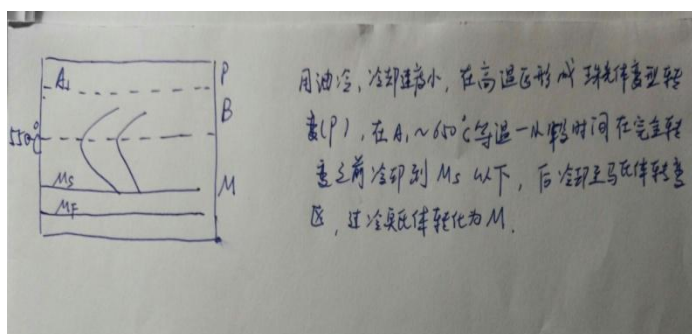 A₁
P
B
550℃
Ms
M
MF
用油冷，冷却速度小，在高温区形成珠光体变型转
变(P)，在A₁~650℃等温一段时间在完全转
变之前冷却到Ms以下，后冷却至马氏体转变
区，过冷奥氏体转化为M.